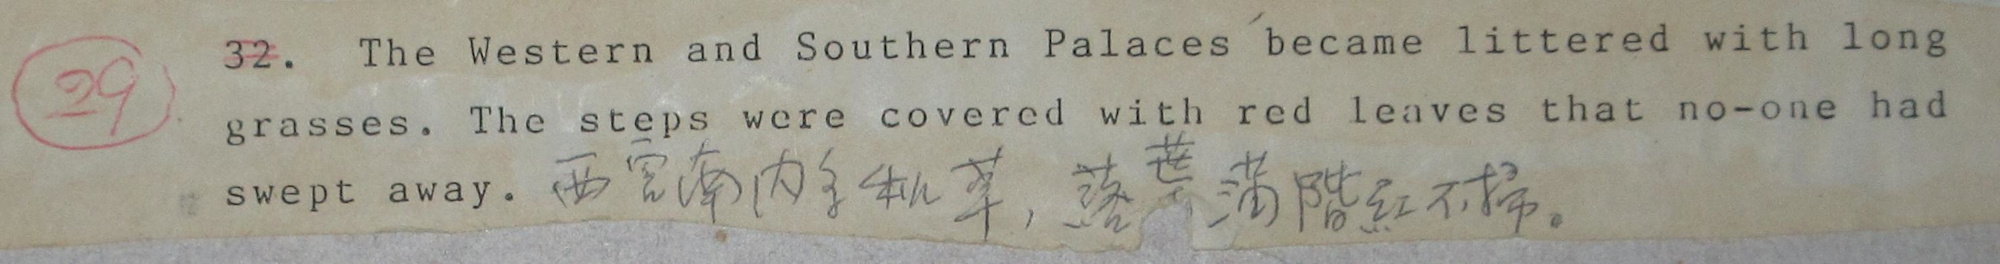 29 32. The Western and Southern Palaces became littered with long
grasses. The steps were covered with red leaves that no-one had
swept away. 西宮南内多秋草，落葉滿階紅不掃。